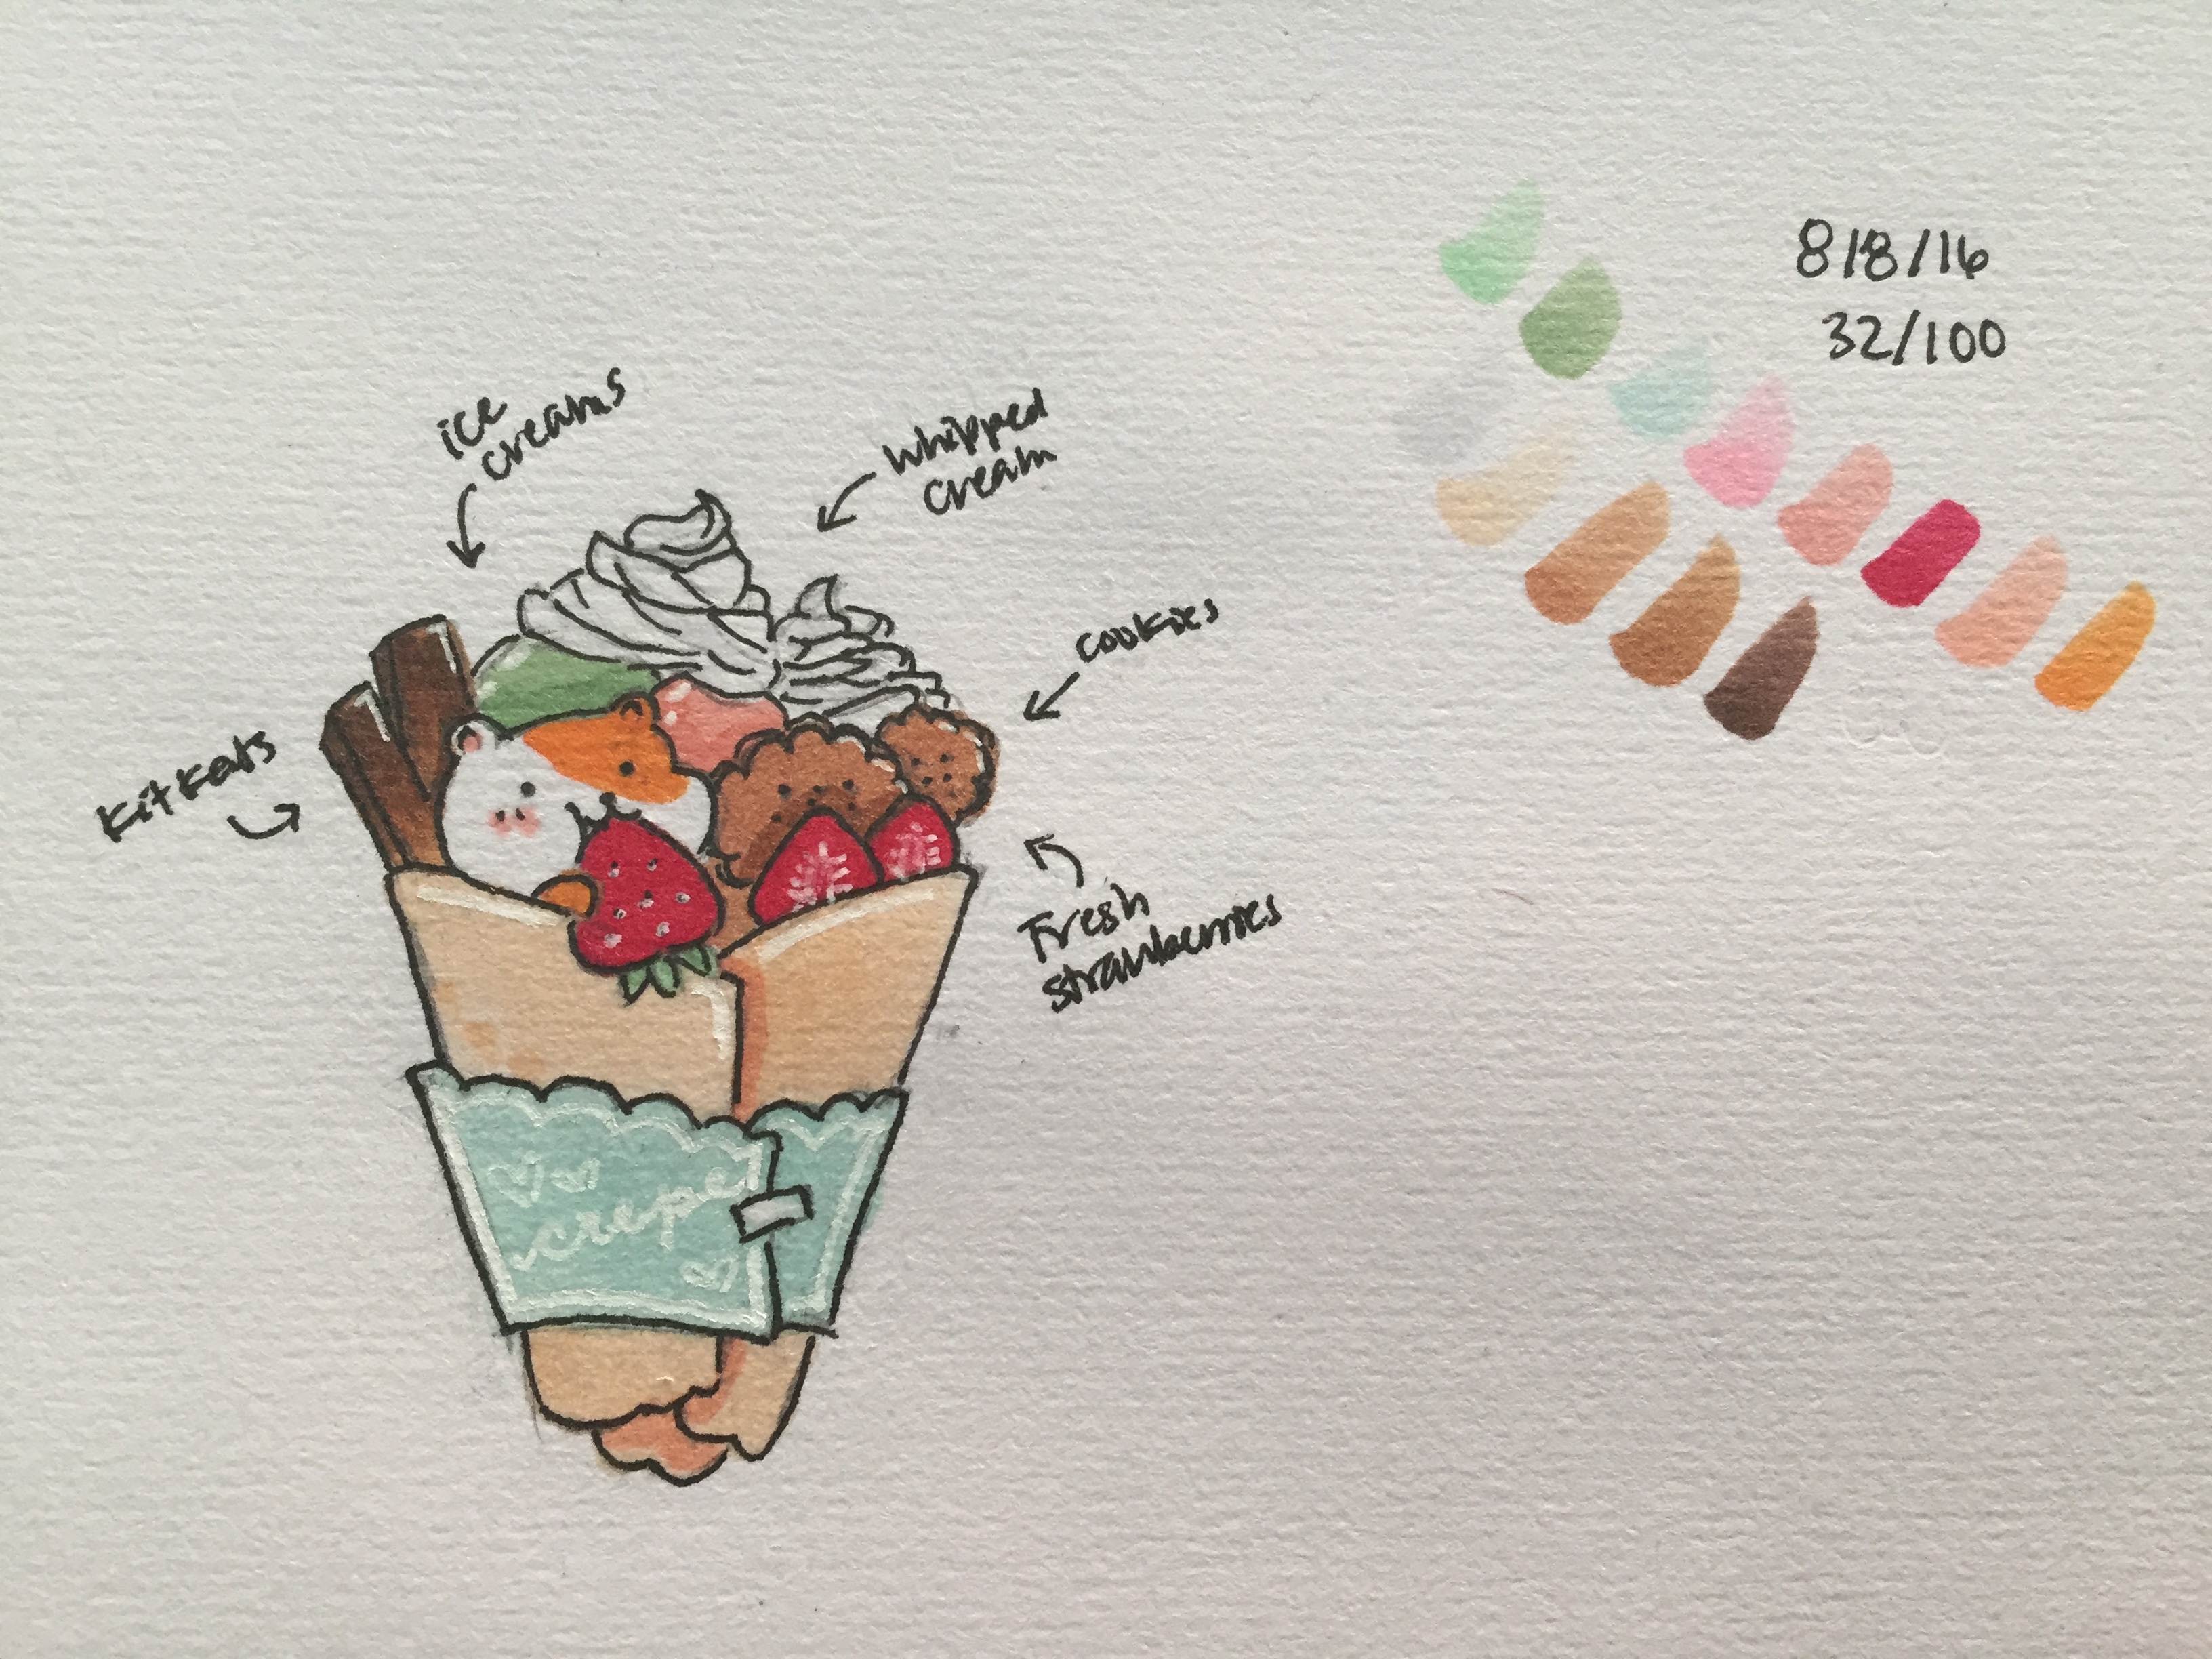 8/8/16
32/100
ice
creams
whipped
cream
cookies
kitkats
Fresh
strawberries
crepe